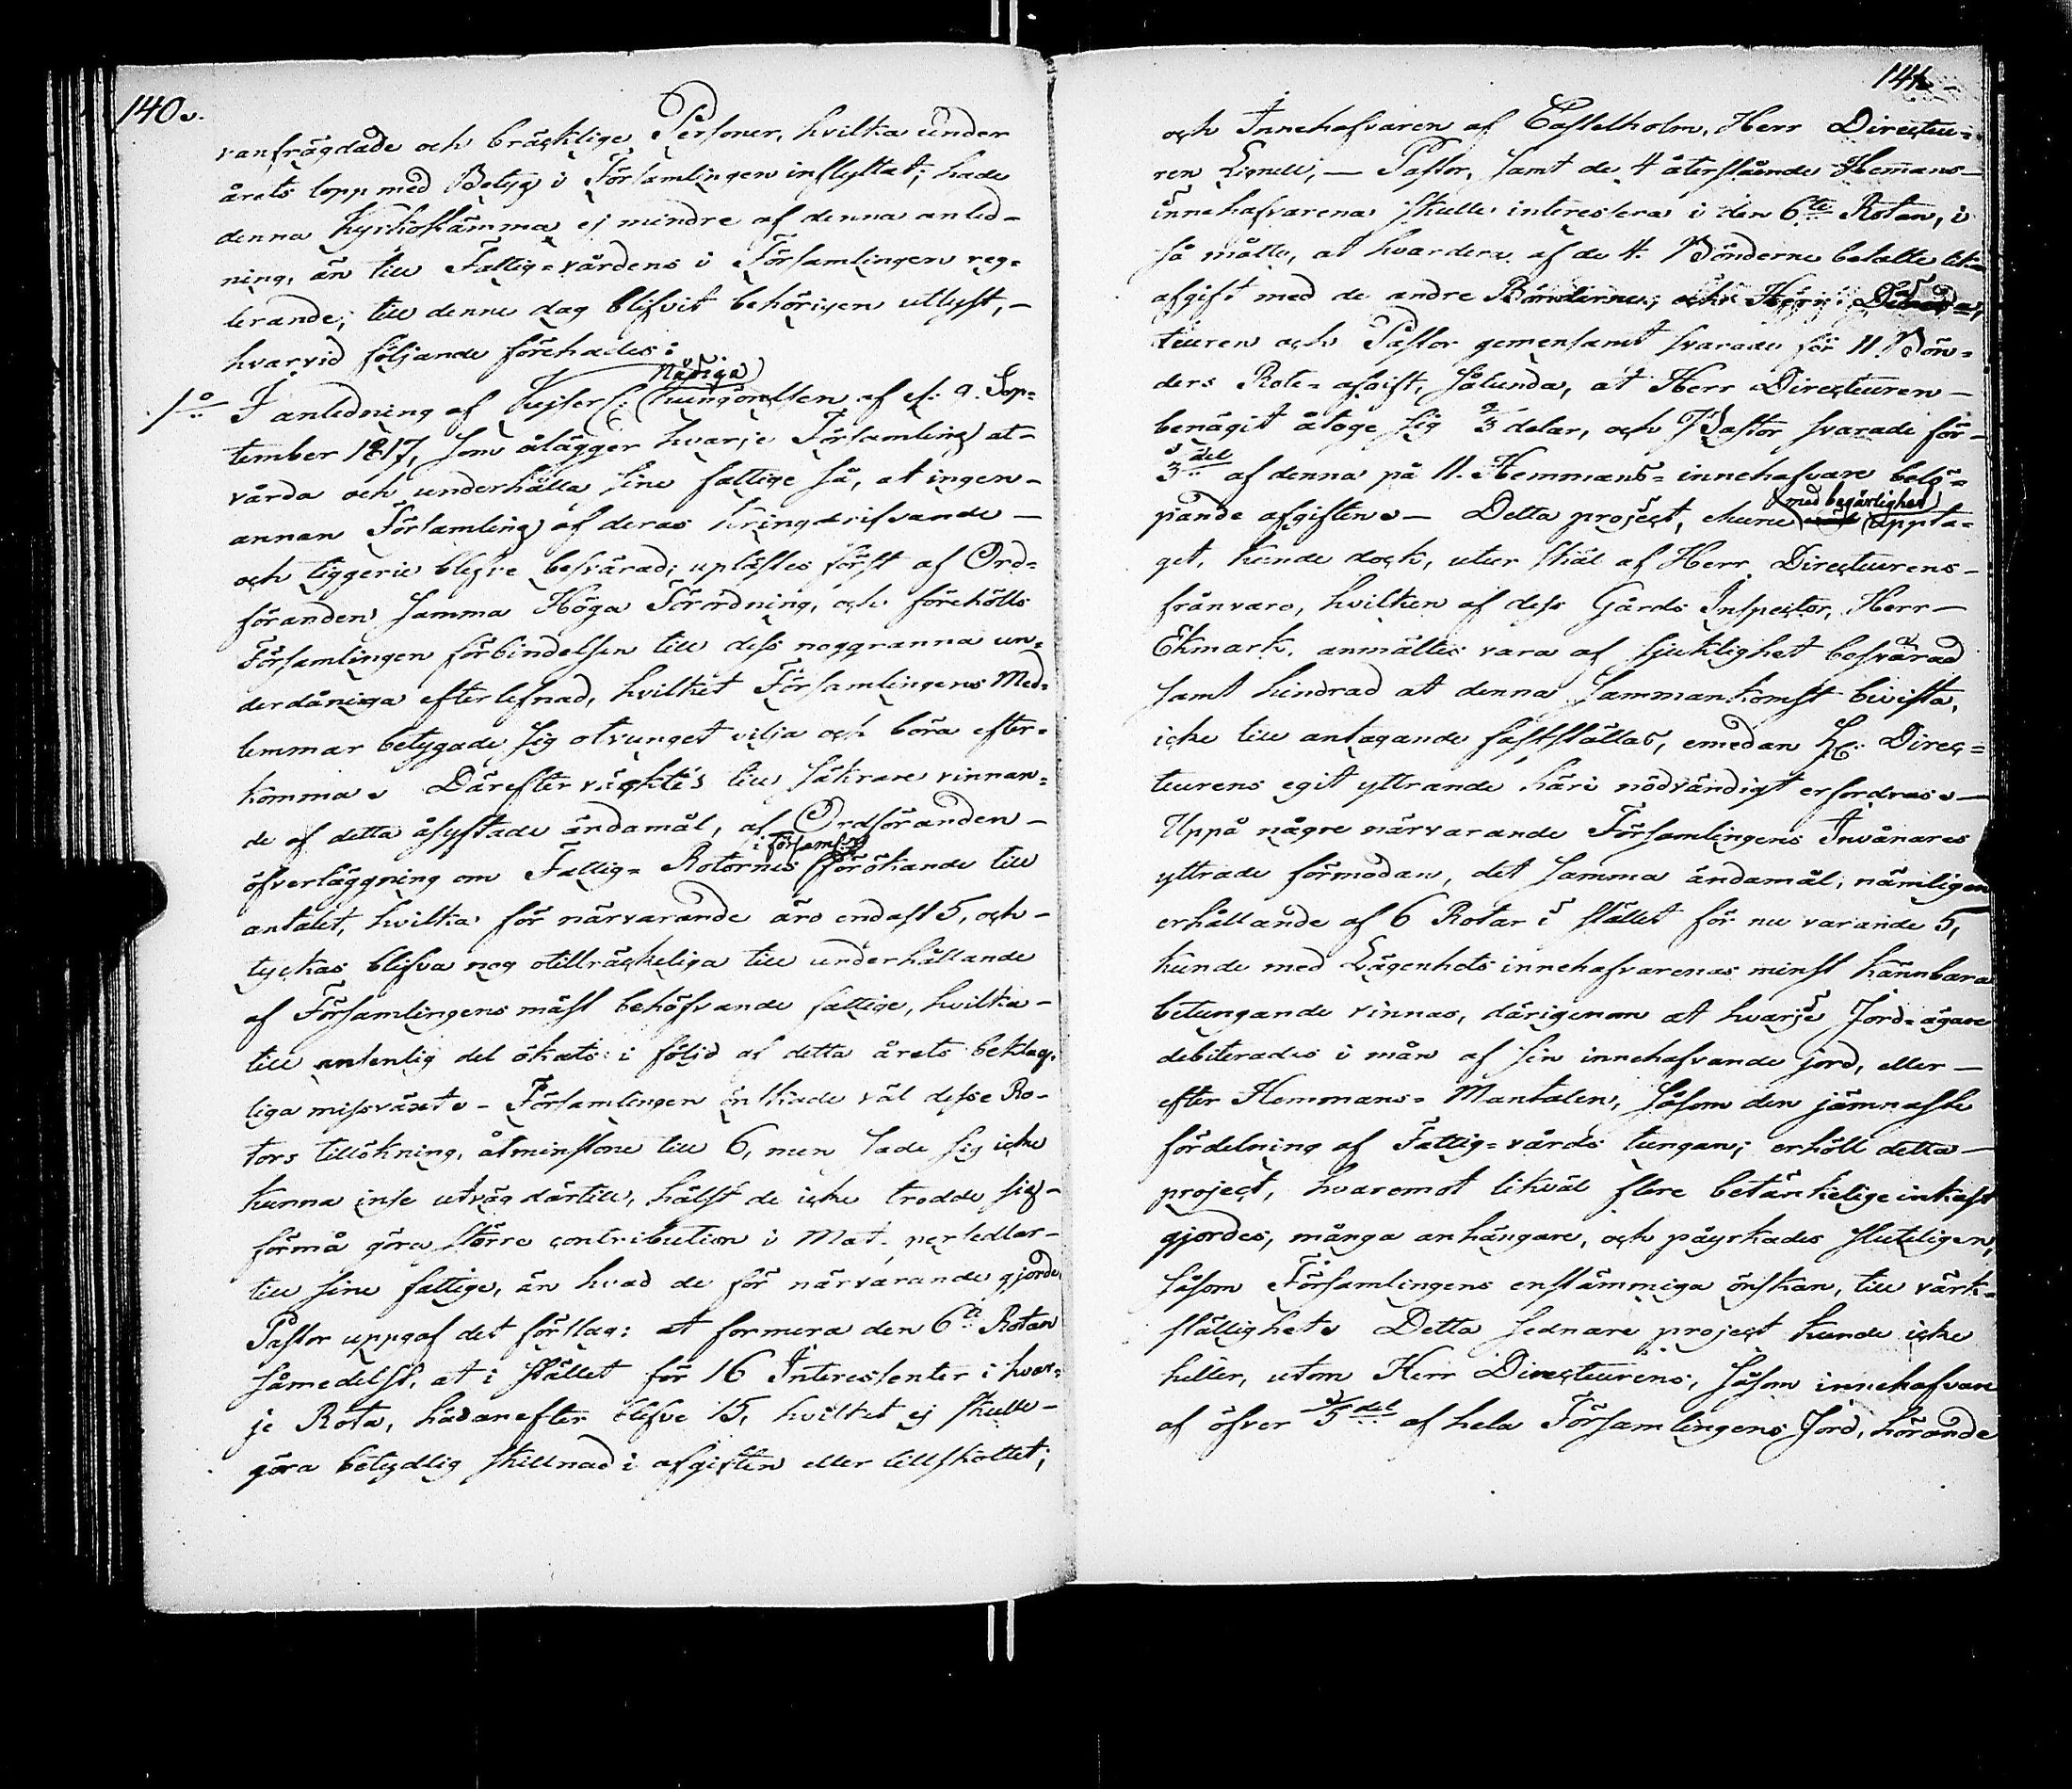 140.
vanfrägdade och bräcklige Personer, hvilka under
årets lopp med Betyg i Församlingen inflyttat; hade
denna Kyrkostämma ej mindre af denna anled-
ning, än till Fattig=vårdens i Församlingen reg-
lerande, till denne dag blifvit behörigen utlyst, -
hvarvid följande förehades:
Nådiga
1o I anledning af Kejserl: Kungörelsen af d: 9. Sep=
tember 1817, som ålägger hvarje Församling at-
vårda och underhålla sine fattige så, at ingen -
annan Församling af deras kringdrifvande -
och tiggerie blefve besvärad; uplästes först af Ord=
föranden samma Höga Förordning, och förehölls
Församlingen förbindelsen till dess noggranna un=
derdåniga efterlefnad, hvilket Församlingens Med=
lemmar betygade sig otvunget vilja och böra efter=
komma. Därefter väcktes till säkrare vinnan=
de af detta åsyftade ändamål, af Ordföranden -
i Församl:g
öfverläggning om Fattig= Rotornes förökande till
antalet, hvilka för närvarande äro endast 5, och -
tyckas blifva nog otillräckeliga till underhållande
af Församlingens mäst behöfvande fattige, hvilka -
till ansenlig del ökats i följd af detta årets beklag-
liga missväxt. - Församlingen önskade väl desse Ro-
tors tillökning, åtminstone till 6, men sade sig icke
kunna inse utväg därtill, hälst de icke trodde sig -
förmå göra större contribution i Mat. persedlar -
till sine fattige, än hvad de för närvarande gjorde.
Pastor uppgaf det förslag: at formera den 6te Rotan
såmedelst, at i stället för 16 Interessenter i hvar=
je Rota, hädanefter blefve 15, hvilket ej skulle -
göra betydlig skillnad i afgiften eller tillskottet;
141.
och Innehafvaren af Castelholm, Herr Directeu=
ren Lignell, - Pastor, samt de 4 återstående Hemans-
innehafvarena skulle interessera i den 6te Rotan, i
så måtto, at hvardera af de 4. Bönderne betalte lika
afgift med de andre Bönderne; och Herr Direc=
teuren och Pastor gemensamt svarade för 11 Bön=
ders Rote=afgift, sålunda, at Herr Directeuren -
benägit åtoge sig 2/3 delar, och Pastor svarade för -
1/3 del af denna på 11. Hemmans=innehafvare belö=
med begärlighet
pande afgiften. - Detta project, ehuru uppta=
get, kunde dock, utur skäl af Herr Directeurens -
frånvaro, hvilken af dess Gårds Inspector, Herr -
Ekmark, anmältes vara af sjuklighet besvärad
samt hindrad at denna sammankomst bivista,
icke till antagande fastställas, emedan Hr. Direc=
teurens egit yttrande häri nödvändigt erfordras. -
Uppå någre närvarande Församlingens Invånares
yttrade förmodan, det samma ändamål, nämligen
erhållande af 6 Rotar i stället för nu varande 5,
kunde med Lägenhets innehafvarenas minst kännbara
betungande vinnas, därigenom at hvarje Jord=ägare
debiterades i mån af sin innehafvande jord, eller -
efter Hemmans= Mantalen, såsom den jämnaste
fördelning af Fattig=vårds tungan; erhöll detta -
project, hvaremot likväl flere betänkelige inkast
gjordes, många anhängare, och påyrkades sluteligen,
såsom Församlingens enstämmiga önskan, till värk-
ställighet. Detta sednare project kunde icke
heller, utom Herr Directeurens, såsom innehafvare
af öfver 1/5 del af hela Församlingens Jord, hörande